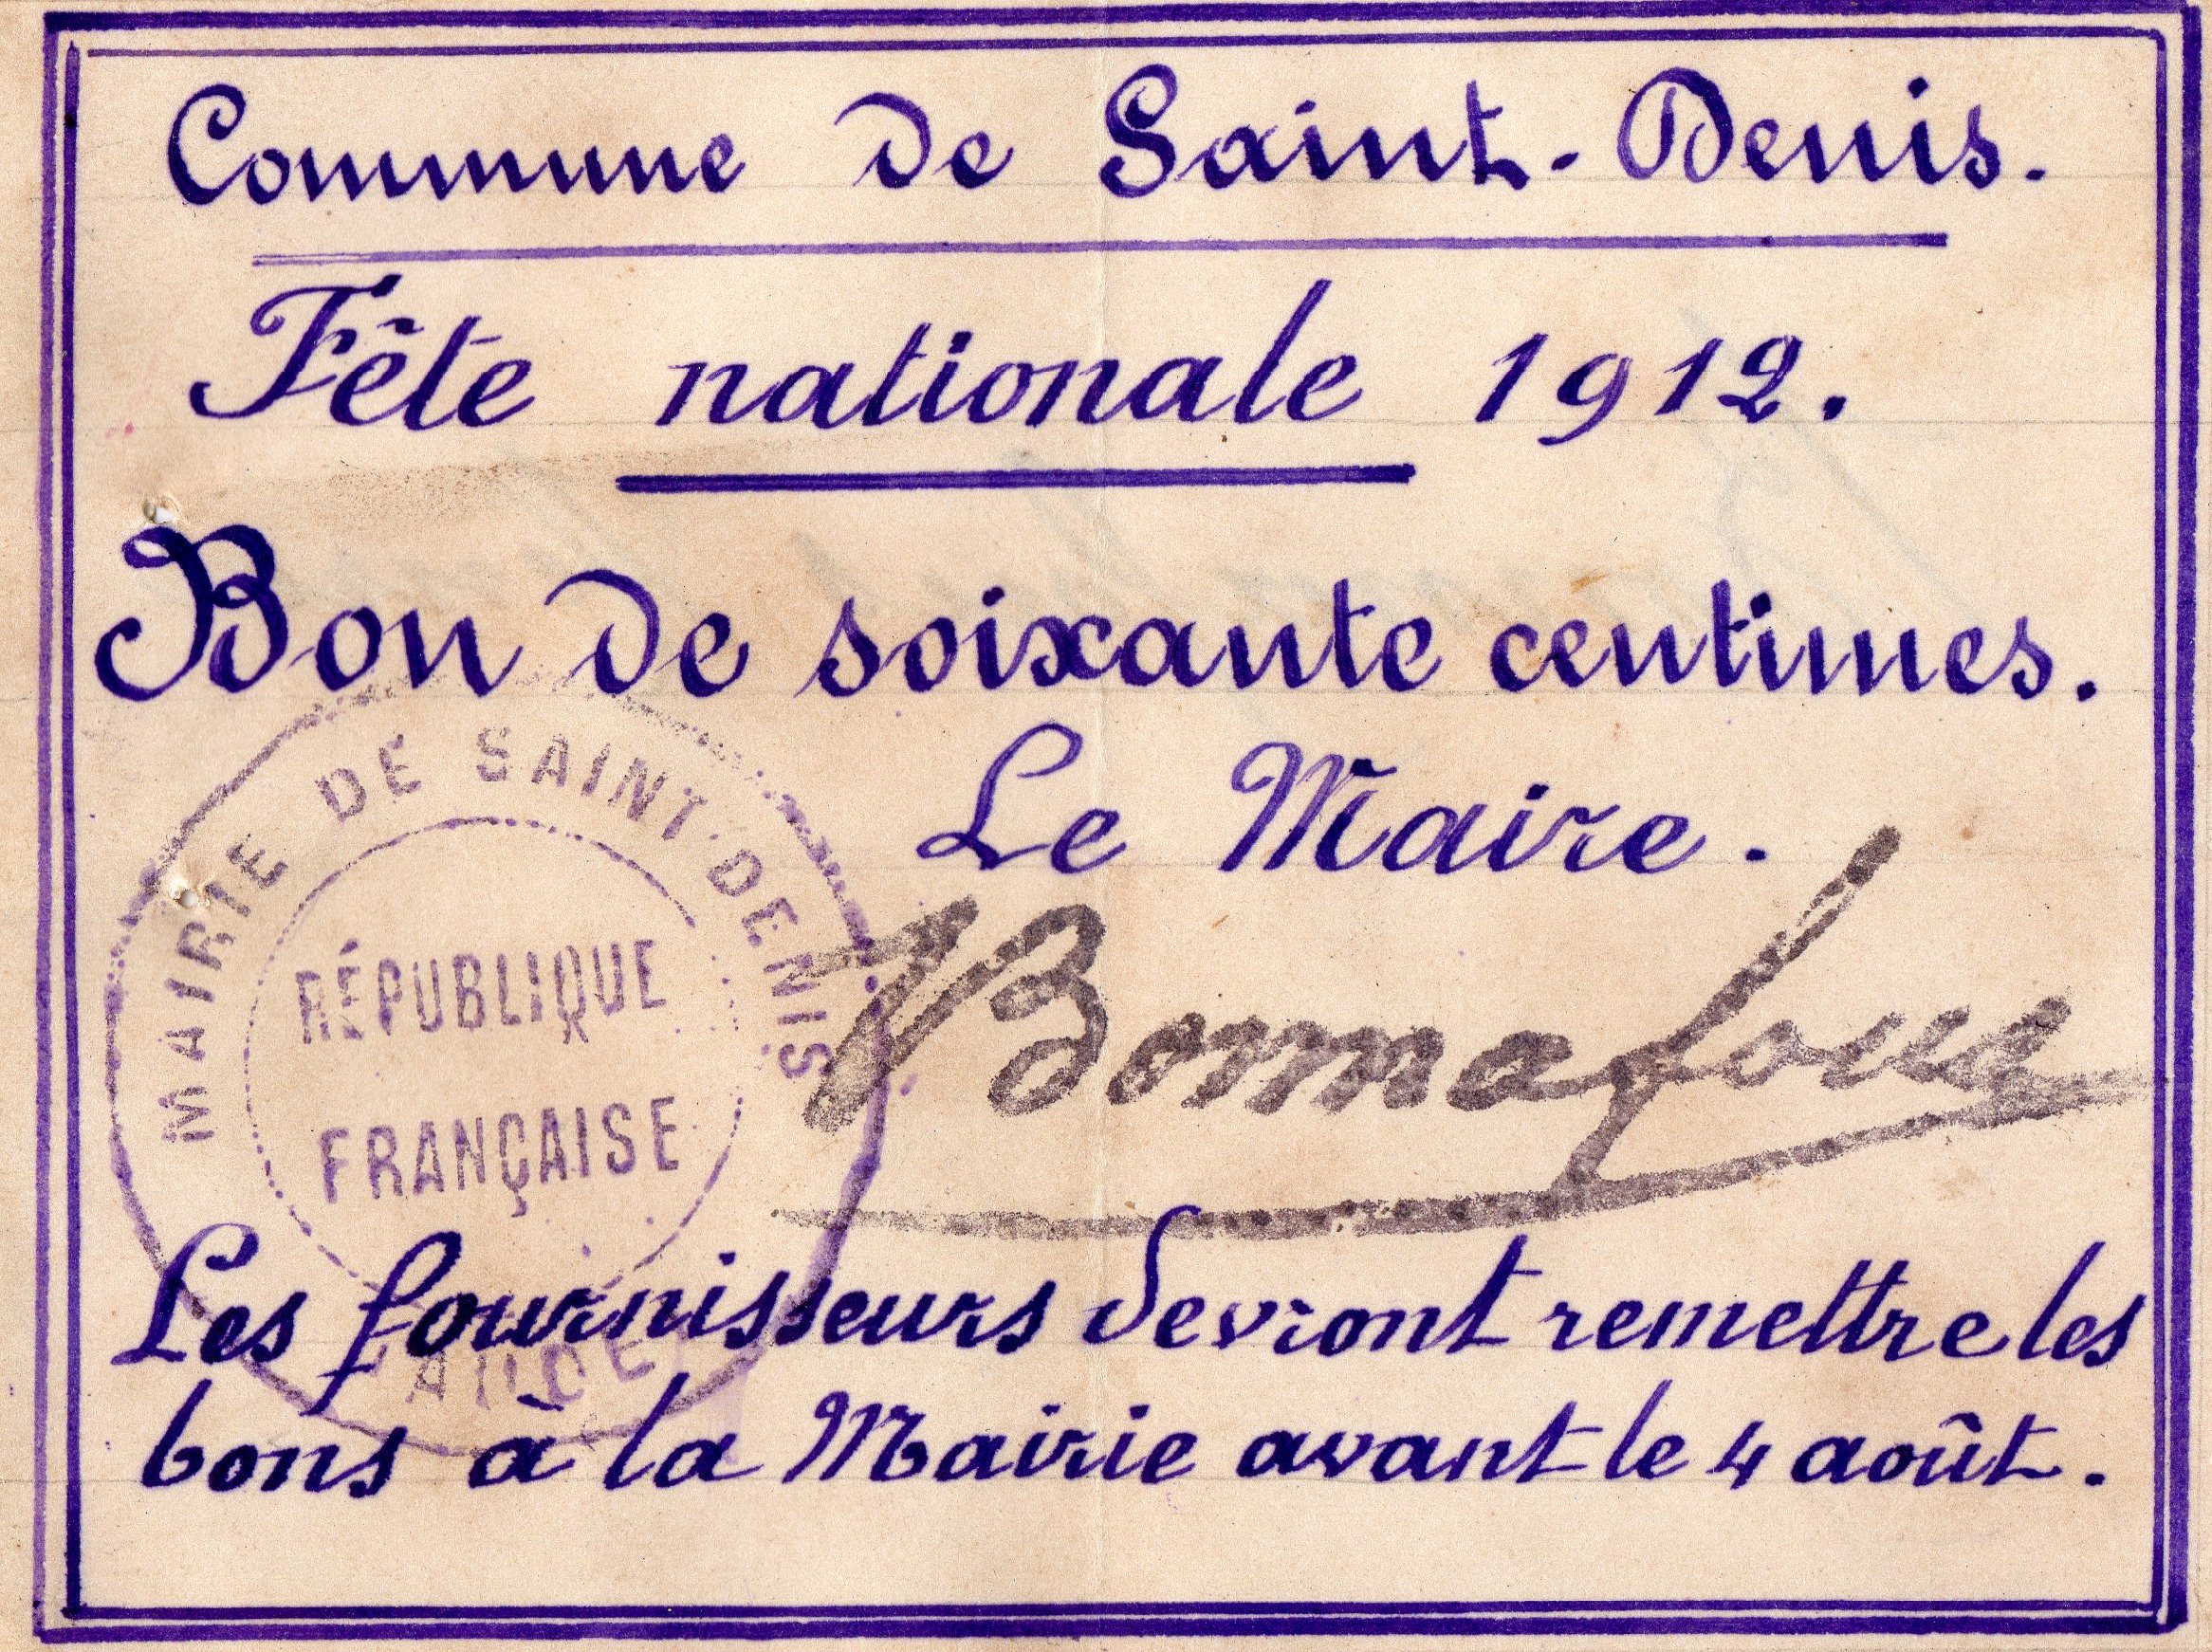 Commune de Saint-Denis.
Fête nationale 1912.
Bon de soixante centimes.
Le Maire.
MAIRIE DE SAINT-DENIS
RÉPUBLIQUE
FRANÇAISE
AUDE
Bonnafous
Les fournisseurs devront remettre les
bons à la Mairie avant le 4 août.